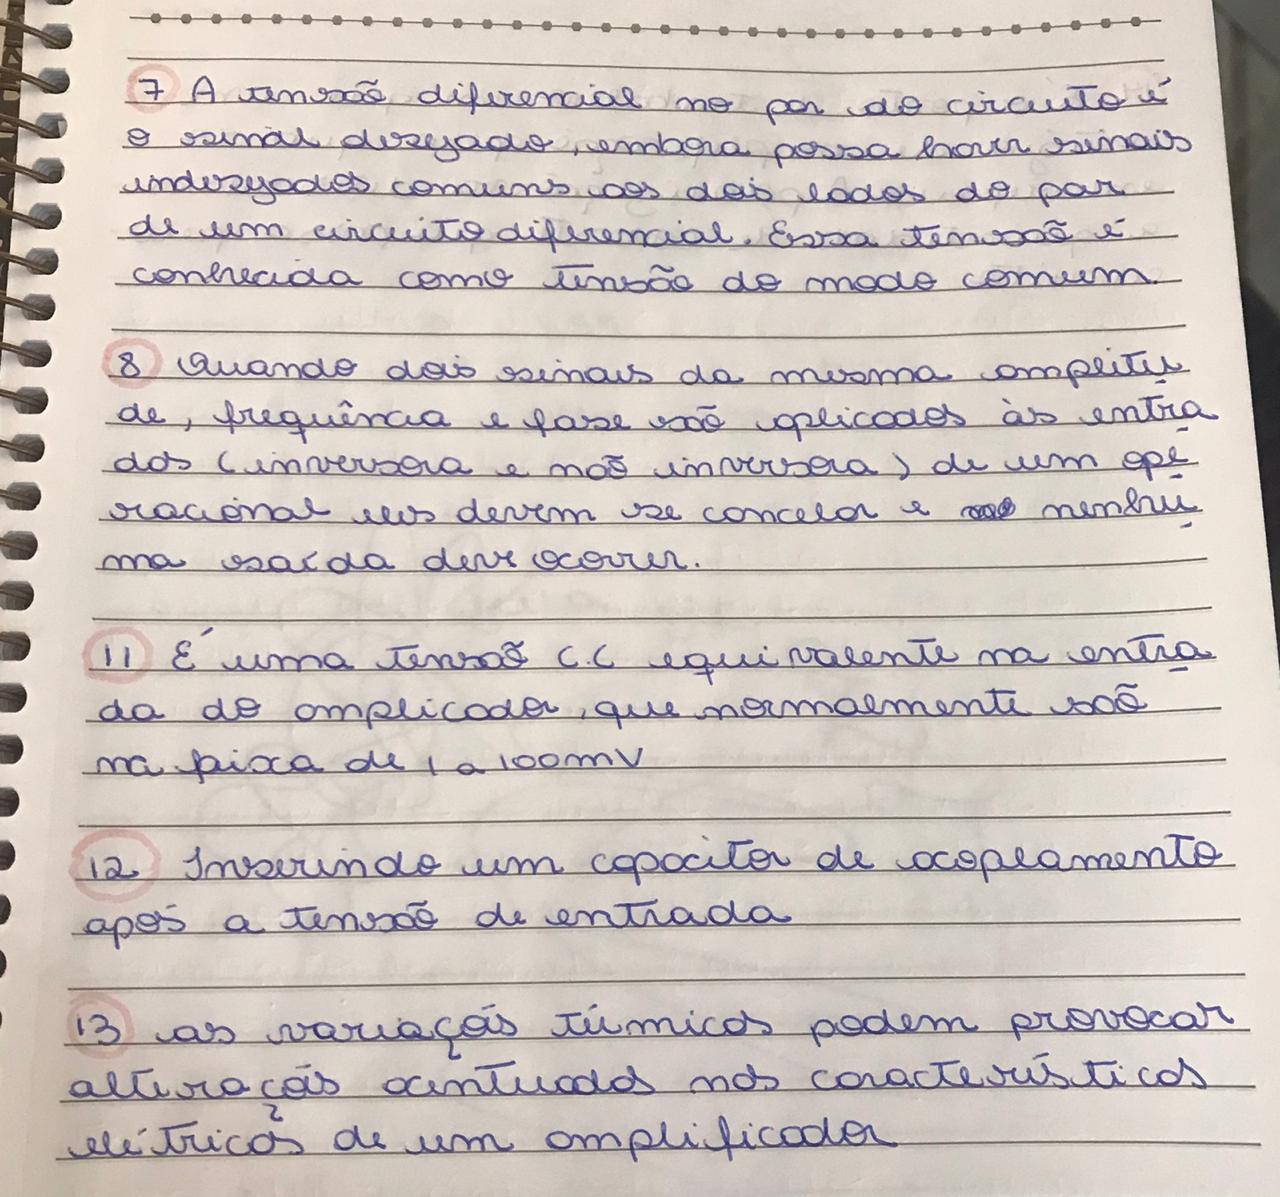 7 A tensão diferencial no par do circuito é
o sinal desejado, embora possa haver sinais
indesejados comuns aos dois lados do par
de um circuito diferencial. Essa tensão é
conhecida como tensão do modo comum.
8 Quando dois sinais da mesma amplitu
de, frequência e fase são aplicados às entra
das (inversora e não inversora) de um ope
racional eles devem se cancelar e nenhu
ma saída deve ocorrer.
11 É uma tensão C.C equivalente na entra
da do amplicador, que normalmente são
na faixa de 1 a 100mV
12 Inserindo um capacitor de acoplamento
após a tensão de entrada
13 as variações térmicas podem provocar
alterações acentuadas nas características
elétricas de um amplificador